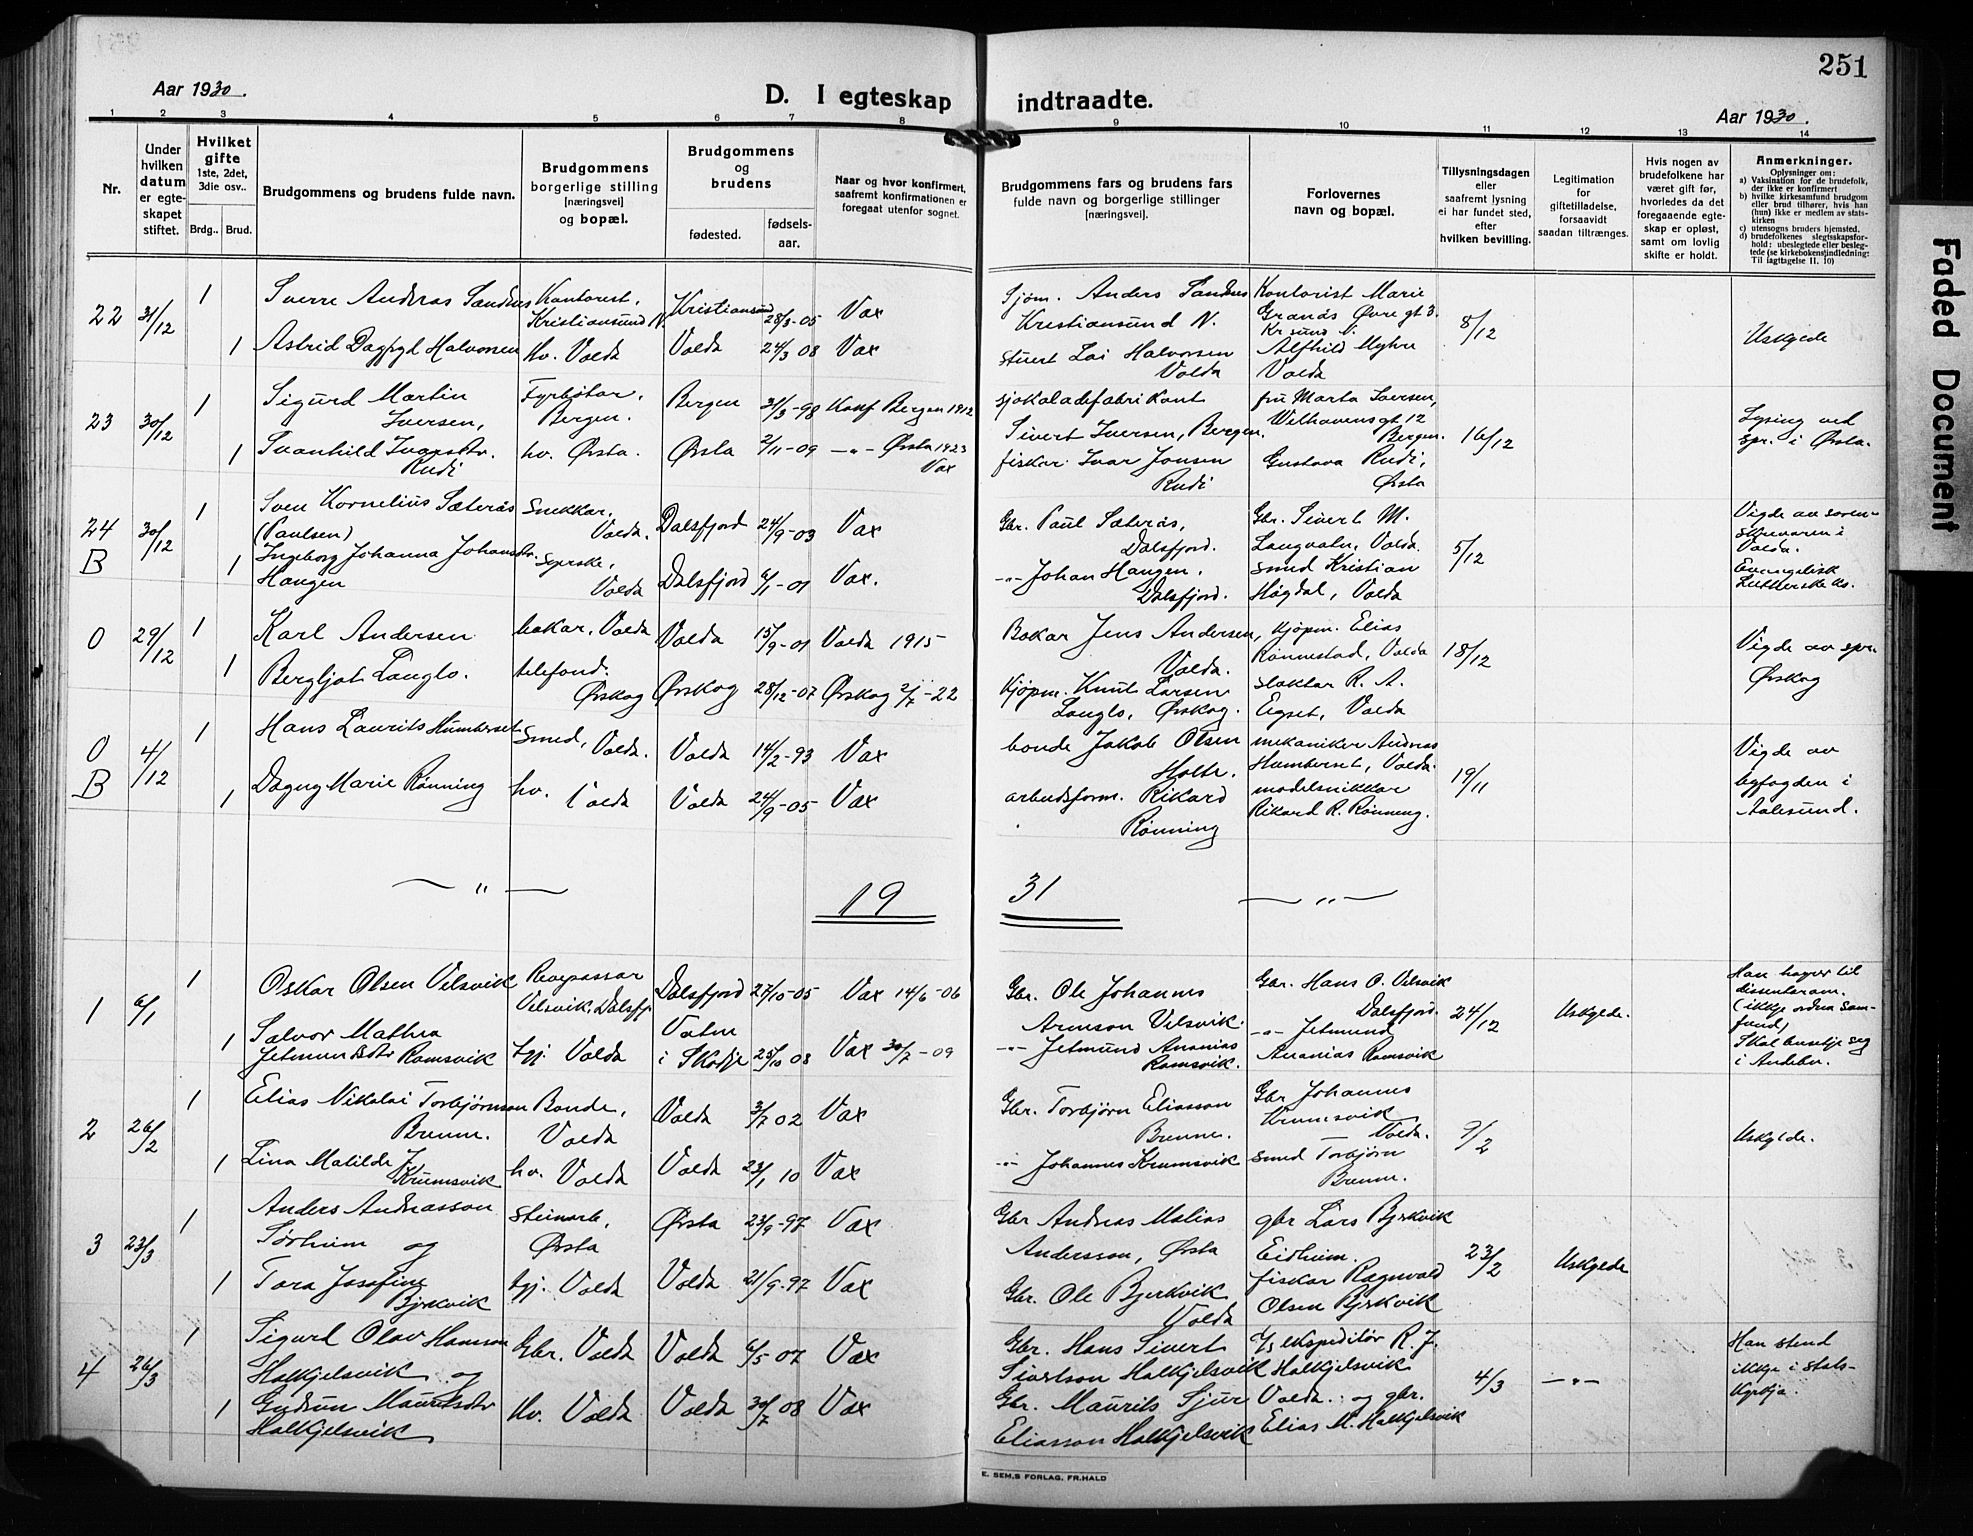 251
Aar 1930.
D. I egteskap
indtraadte.
Aar 1930.
1 2 3 4 5 6 7 8 9 10 11 12 13 14
Nr.
Under
hvilken
datum
er egte-
skapet
stiftet.
Hvilket
gifte
1ste, 2det,
3die osv..
Brdg.. Brud.
Brudgommens og brudens fulde navn.
Brudgommens
borgerlige stilling
[næringsvei]
og bopæl.
Brudgommens
og
brudens
fødested.
fødsels-
aar.
Naar og hvor konfirmert,
saafremt konfirmationen er
foregaat utenfor sognet.
Brudgommens fars og brudens fars
fulde navn og borgerlige stillinger
[næringsvei].
Forlovernes
navn og bopæl.
Tillysningsdagen
eller
saafremt lysning
ei har fundet sted,
efter
hvilken bevilling.
Legitimation
for
giftetilladelse,
forsaavidt
saadan tiltrænges.
Hvis nogen av
brudefolkene har
været gift før,
hvorledes da det
foregaaende egte-
skap er opløst,
samt om lovlig
skifte er holdt.
Anmerkninger.
Oplysninger om:
a) Vaksination for de brudefolk,
der ikke er konfirmert
b) hvilke kirkesamfund brudgom
eller brud tilhører, hvis han
(hun) ikke er medlem av stats-
kirken
c) utensogns bruders hjemsted.
d) brudefolkenes slegtsskapsfor-
hold: ubeslegtede eller besleg-
tede (se kirkebokens indledning:
Til iagttagelse II. 10)
22 31/12 1 Sverre Andreas Sandnes
Kontorist,
Kristiansund N.
Kristiansund
28/3-05 Vax
Sjøm. Anders Sandnes
Kristiansund N.
Kontorist Marie
Granås Øvre gt 3.
Kr sund N.
8/12
Uskylde
1 Astrid Dagny Halvorsen
hv. Volda Volda 24/3 08 Vax
stuert Lai Halvorsen
Volda
Alfhild Myhre
Volda
23 30/12 1 Sigurd Martin
Iversen,
Fyrbøtar,
Bergen.
Bergen 31/3-98 Konf Bergen 1912
sjokoladefabrikant
Sivert Iversen, Bergen.
fru Marta Iversen,
Welhavensgt 12
Bergen.
16/12
Lysing ved
spr. i Ørsta.
1 Svanhild Ivarsdtr.
Rudi
hv. Ørsta. Ørsta 2/11-09 —"— Ørsta 1923
Vax
fiskar Ivar Jonsen
Rudi
Gustava Rudi,
Ørsta
24
B
30/12 1 Sven Kornelius Sæterås
(Paulsen)
Snekkar,
Volda.
Dalsfjord 24/9-03 Vax
Gbr. Paul Sæterås,
Dalsfjord.
Gbr. Sivert M.
Langvatn, Volda.
5/12
Vigde av soren-
skrivaren i
Volda.
Evangelisk
Lutherske ks.
1 Ingeborg Johanna Johansdtr.
Haugen
Syerske,
Volda
Dalsfjord 6/1-01 Vax.
—"— Johan Haugen,
Dalsfjord.
smed Kristian
Høgdal, Volda
0 29/12 1 Karl Andersen
bakar, Volda Volda 15/9-01 Volda 1915
Bakar Jens Andersen,
Volda.
Kjøpm. Elias
Rønnestad, Volda
18/12
Vigde av spr.
Ørskog
1 Bergljot Langlo.
telefond.
Ørskog
Ørskog 28/12-07 Ørskog 2/7-22
Kjøpm. Knut Larsen
Langlo, Ørskog.
slaktar R. A.
Eigset, Volda
0
B
4/12 1 Hans Laurits Humberset
Smed, Volda. Volda 14/2-93 Vax
bonde Jakob Olsen
Holte.
mekaniker Andreas
Humberset, Volda.
19/11
Vigde av
byfogden i
Aalesund.
1 Dagny Marie Rønning
hv. Volda Volda 24/9-05 Vax
arbeidsform. Rikard
Rønning
modelsnikkar
Rikard R. Rønning.
— " —
19
31
— " —
1 6/1 1 Oskar Olsen Velsvik
Revepassar
Velsvik, Dalsfj.
Dalsfjord 27/10-05 Vax 14/6-06
Gbr. Ole Johannes
Arneson Velsvik.
Gbr. Hans O. Velsvik
Dalsfjord.
24/12 Uskylde.
Han høyrer til
dissentaram.
(ikkje ordna sam-
fund)
Skal busetje seg
i Andebu.
1 Salvor Mathea
Jetmundsdtr Ramsvik
tyj. Volda
Vatne
i Skodje
25/10 08 Vax 30/7-09
—"— Jetmund Ananias
Ramsvik.
—"— Jetmund
Ananias Ramsvik
2 26/2 1 Elias Nikolai Torbjørnson
Brenne.
Bonde,
Volda
Volda 3/7 02 Vax
Gbr. Torbjørn Eliasson
Brenne.
Gbr Johannes
Krumsvik
Volda.
9/2
Uskylde.
1 Lina Matilde J.
Krumsvik
hv. Volda Volda 23/1 10 Vax
—"— Johannes Krumsvik
smed Torbjørn
Brenne.
3 23/3 1 Anders Andreasson
Sørheim og
Steinarb,
Ørsta
Ørsta 23/9-97 Vax
Gbr Andreas Matias
Andersson, Ørsta
gbr Lars Bjrkvik
Eidheim.
23/2 Uskylde
1 Tora Josefine
Bjrkvik
tyj. Volda Volda 21/9-97 Vax
Gbr. Ole Bjerkvik
Volda
fiskar Ragnvald
Olsen Bjrkvik
4 26/3 1 Sigurd Olav Hansson
Halkjelsvik og
Gbr. Volda Volda 6/5 07 Vax
Gbr. Hans Sivert
Sivertson Halkjelsvik
D/s ekspeditør R. J.
Halkjelsvik
Volda. og gbr.
Elias M. Halkjelsvik
4/3 —"—
Han stend
ikkje i stats-
kyrkja.
1 Gudrun Mauritsdtr
Halkjelsvik
Hv. Volda Volda 30/7 08 Vax
Gbr. Maurits Sjur
Eliasson Halkjelsvik
E. SEM,S FORLAG, FR.HALD
Faded Document